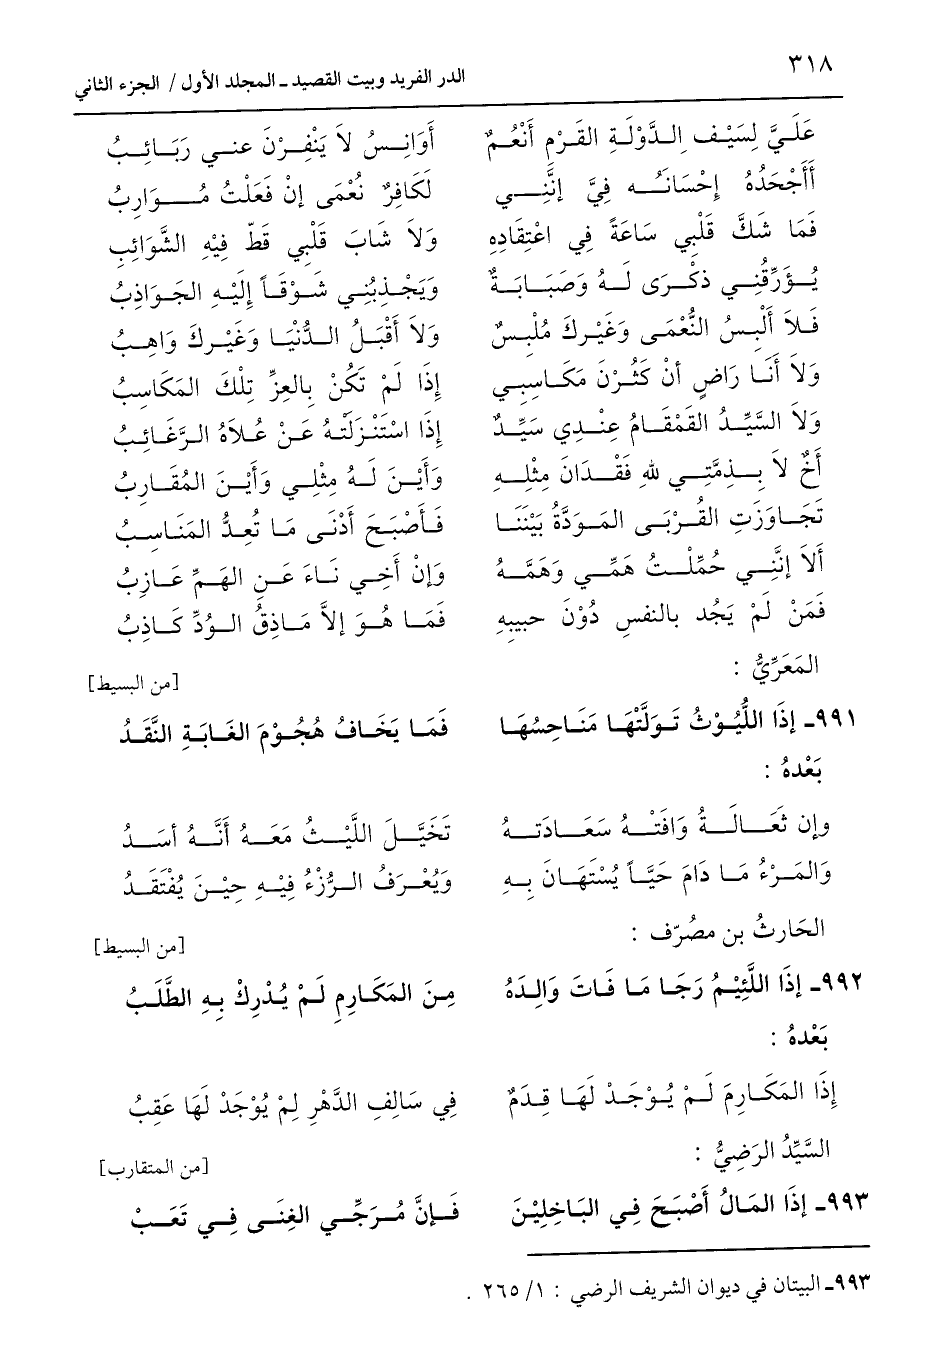 ٣١٨
الدر الفريد وبيت القصيد ـ المجلد الأول / الجزء الثاني
عَلَيَّ لِسَيْفِ الدَّوْلَةِ القَرْمِ أَنْعُمٌ أَوَانِسُ لاَ يَنْفِرْنَ عني رَبَائِبُ
أَأَجْحَدُهُ إِحْسَانَهُ فِيَّ إنَّنِي لَكَافِرُ نُعْمَى إنْ فَعَلْتُ مُوَارِبُ
فَمَا شَكَّ قَلْبِي سَاعَةً فِي اعْتِقَادِهِ وَلاَ شَابَ قَلْبِي قَطّ فِيْهِ الشَّوَائِبِ
يُؤَرِّقُنِي ذكْرَى لَهُ وَصَبَابَةٌ وَيَجْذِبُنِي شَوْقَاً إِلَيْهِ الجَوَاذِبُ
فَلاَ أَلْبِسُ النُّعْمَى وَغَيْرِكَ مُلْبِسٌ وَلاَ أَقْبَلُ الدُّنْيَا وَغَيْرِكَ وَاهِبُ
وَلاَ أَنَا رَاضٍ أنْ كَثُرْنَ مَكَاسِبِي إِذَا لَمْ تَكُنْ بِالعِزِّ تِلْكَ المَكَاسِبُ
وَلاَ السَّيِّدُ القَمْقَامُ عِنْدِي سَيِّدٌ إذَا اسْتَنْزَلَتْهُ عَنْ عُلاَهُ الرَّغَائِبُ
أخٌ لاَ يذمتِي لله فَقْدَانَ مِثْلِهِ وَأَيْنَ لَهُ مِثْلِي وَأَيْنَ المُقَارِبُ
تَجَاوَزَتِ القُرْبَى المَوَدَّةُ بَيْنَنَا فَأَصْبَحَ أَدْنَى مَا تُعِدُّ المَنَاسِبُ
ألاَ إنَّنِي حُمِّلْتُ هَمِّي وَهَمَّهُ وَإنْ أخِي نَاءَ عَنِ الهَمِّ عَازِبُ
فَمَنْ لَمْ يَجُد بالنفسِ دُوْنَ حبيبِهِ فَمَا هُوَ إلاَّ مَاذِقُ الوُدِّ كَاذِبُ
المَعَرِّيُّ :
[من البسيط]
٩٩١ـ إذَا اللُّيُوْثُ تَوَلَّتْهَا مَنَاحِسُهَا فَمَا يَخَافُ هُجُوْمَ الغَابَةِ النَّقَدُ
بَعْدهُ :
وإن ثَعَالَةُ وَافَتْهُ سَعَادَتهُ تَخَيَّلَ اللَّيْثُ مَعَهُ أنَّهُ أسَدُ
وَالمَرْءُ مَا دَامَ حَيَّاً يُسْتَهَانَ بِهِ وَيُعْرَفُ الرُّزْءُ فِيْهِ حِيْنَ يُفْتَقَدُ
الحَارثُ بن مصُرّف :
[من البسيط]
٩٩٢ـ إذَا اللَّئِيْمُ رَجَا مَا فَاتَ وَالِدَهُ مِنَ المَكَارِمِ لَمْ يُدْرِكْ بِهِ الطَّلَبُ
بَعْدهُ :
إذَا المَكَارِمَ لَمْ يُوْجَدْ لَهَا قِدَمٌ فِي سَالِفِ الدَّهْرِ لمْ يُوْجَدْ لَهَا عَقِبُ
السَّيِّدُ الرَضِيُّ :
[من المتقارب]
٩٩٣ـ إذَا المَالُ أَصْبَحَ فِي البَاخِلِيْنَ فَإنَّ مُرَجِّي الغِنَى فِي تَعَبْ
٩٩٣ـ البيتان في ديوان الشريف الرضي : ١/ ٢٦٥ .